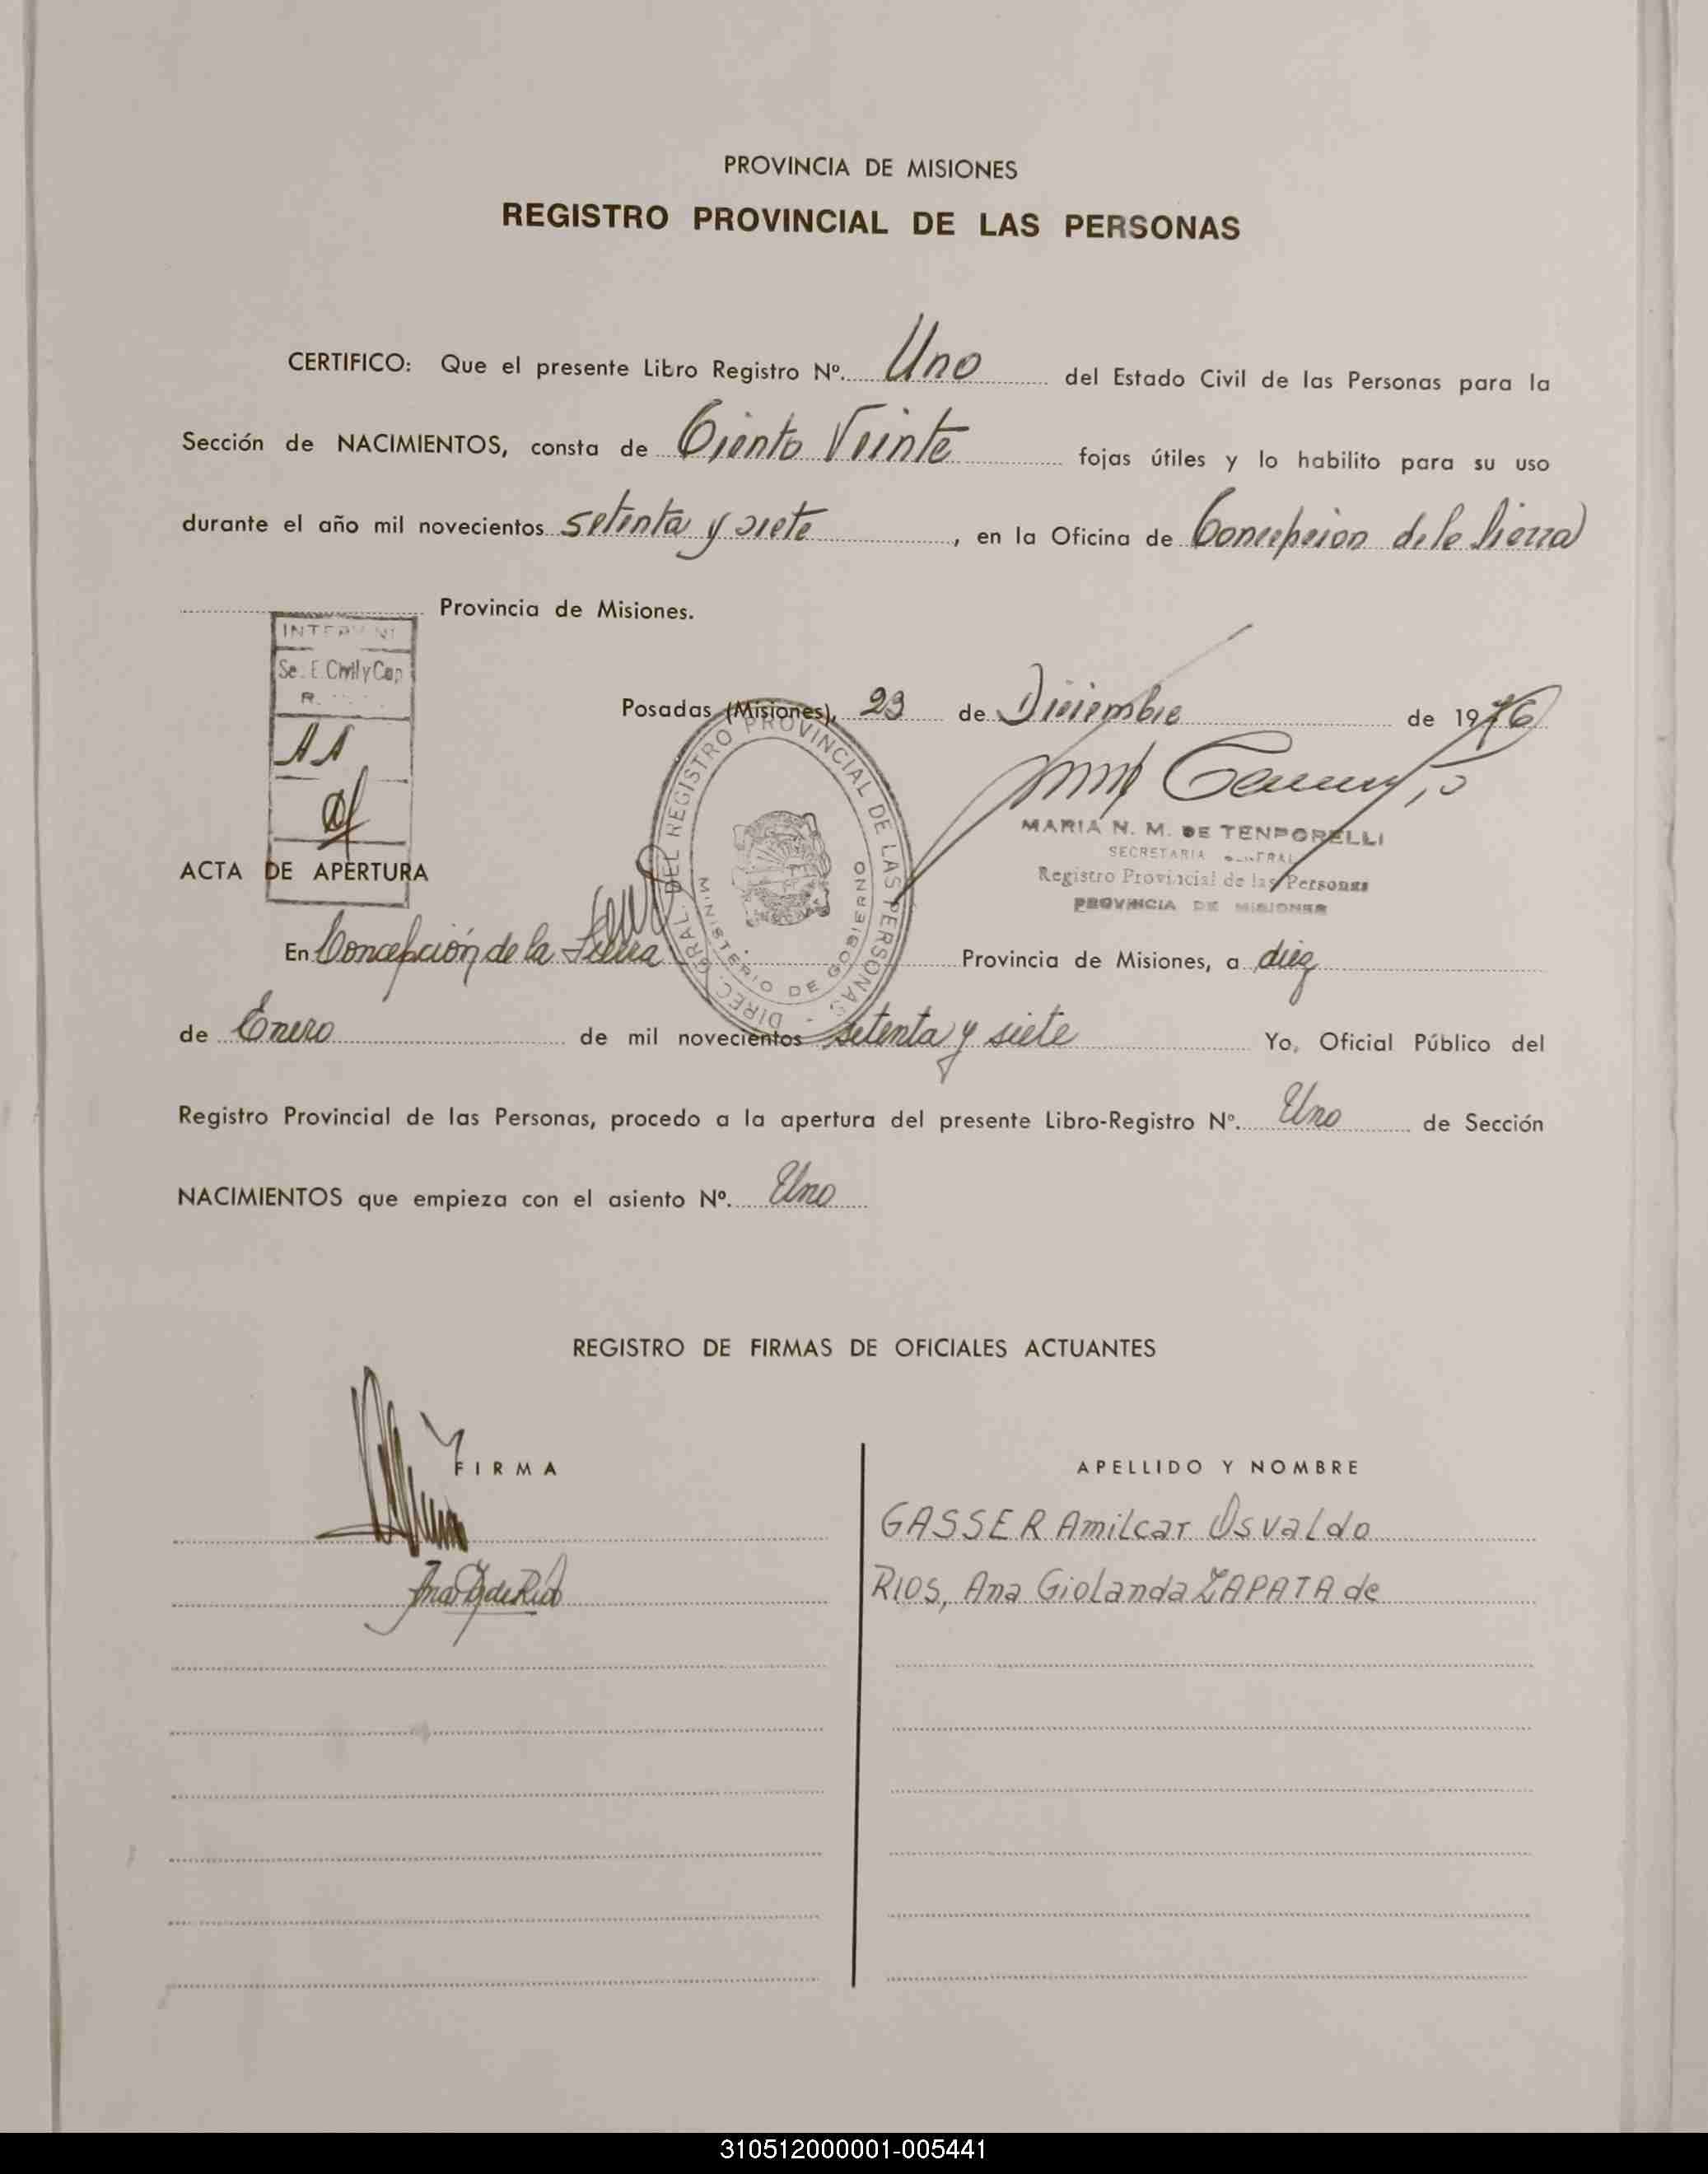 PROVINCIA DE MISIONES
REGISTRO PROVINCIAL DE LAS PERSONAS
CERTIFICO: Que el presente Libro Registro Nº. Uno del Estado Civil de las Personas para la
Sección de NACIMIENTOS, consta de Ciento Veinte fojas útiles y lo habilito para su uso
durante el año mil novecientos setenta y siete, en la Oficina de Concepcion de la Sierra
Provincia de Misiones.
Se. E. Civil y Cap
R.
11
Posadas (Misiones), 23 de Diciembre de 1976
DIREC. GRAL. DEL REGISTRO PROVINCIAL DE LAS PERSONAS - MINISTERIO DE GOBIERNO
MARIA N. M. DE TENPORELLI
SECRETARIA GENERAL
Registro Provincial de las Personas
PROVINCIA DE MISIONES
ACTA DE APERTURA
En Concepción de la Sierra Provincia de Misiones, a diez
de Enero de mil novecientos setenta y siete Yo, Oficial Público del
Registro Provincial de las Personas, procedo a la apertura del presente Libro-Registro Nº. Uno de Sección
NACIMIENTOS que empieza con el asiento Nº. Uno
REGISTRO DE FIRMAS DE OFICIALES ACTUANTES
FIRMA APELLIDO Y NOMBRE
GASSER Amilcar Osvaldo
Ana Z de Rios RIOS, Ana Giolanda ZAPATA de
310512000001-005441